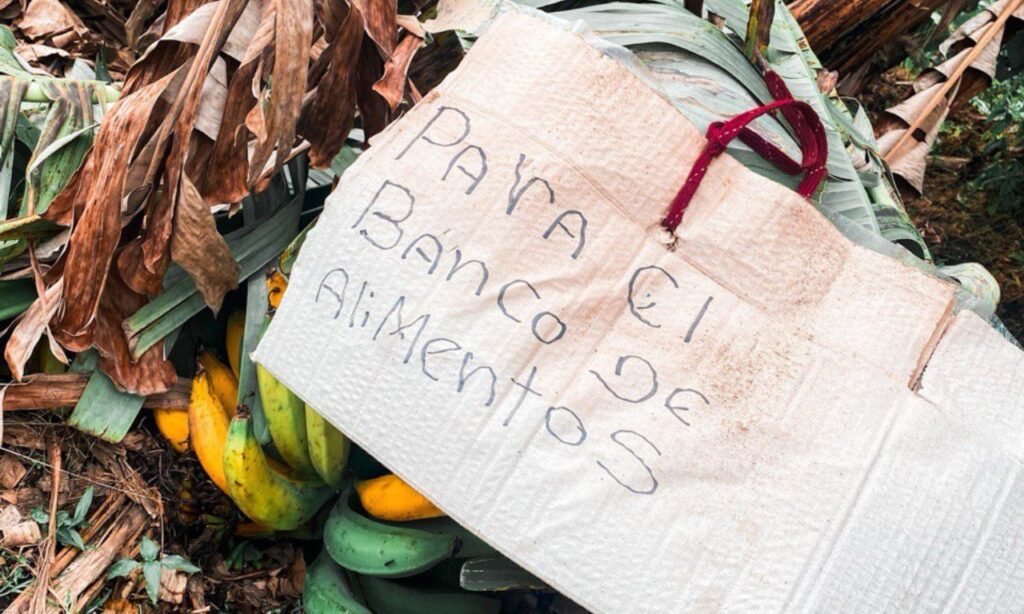 Para El
Banco de
Alimentos